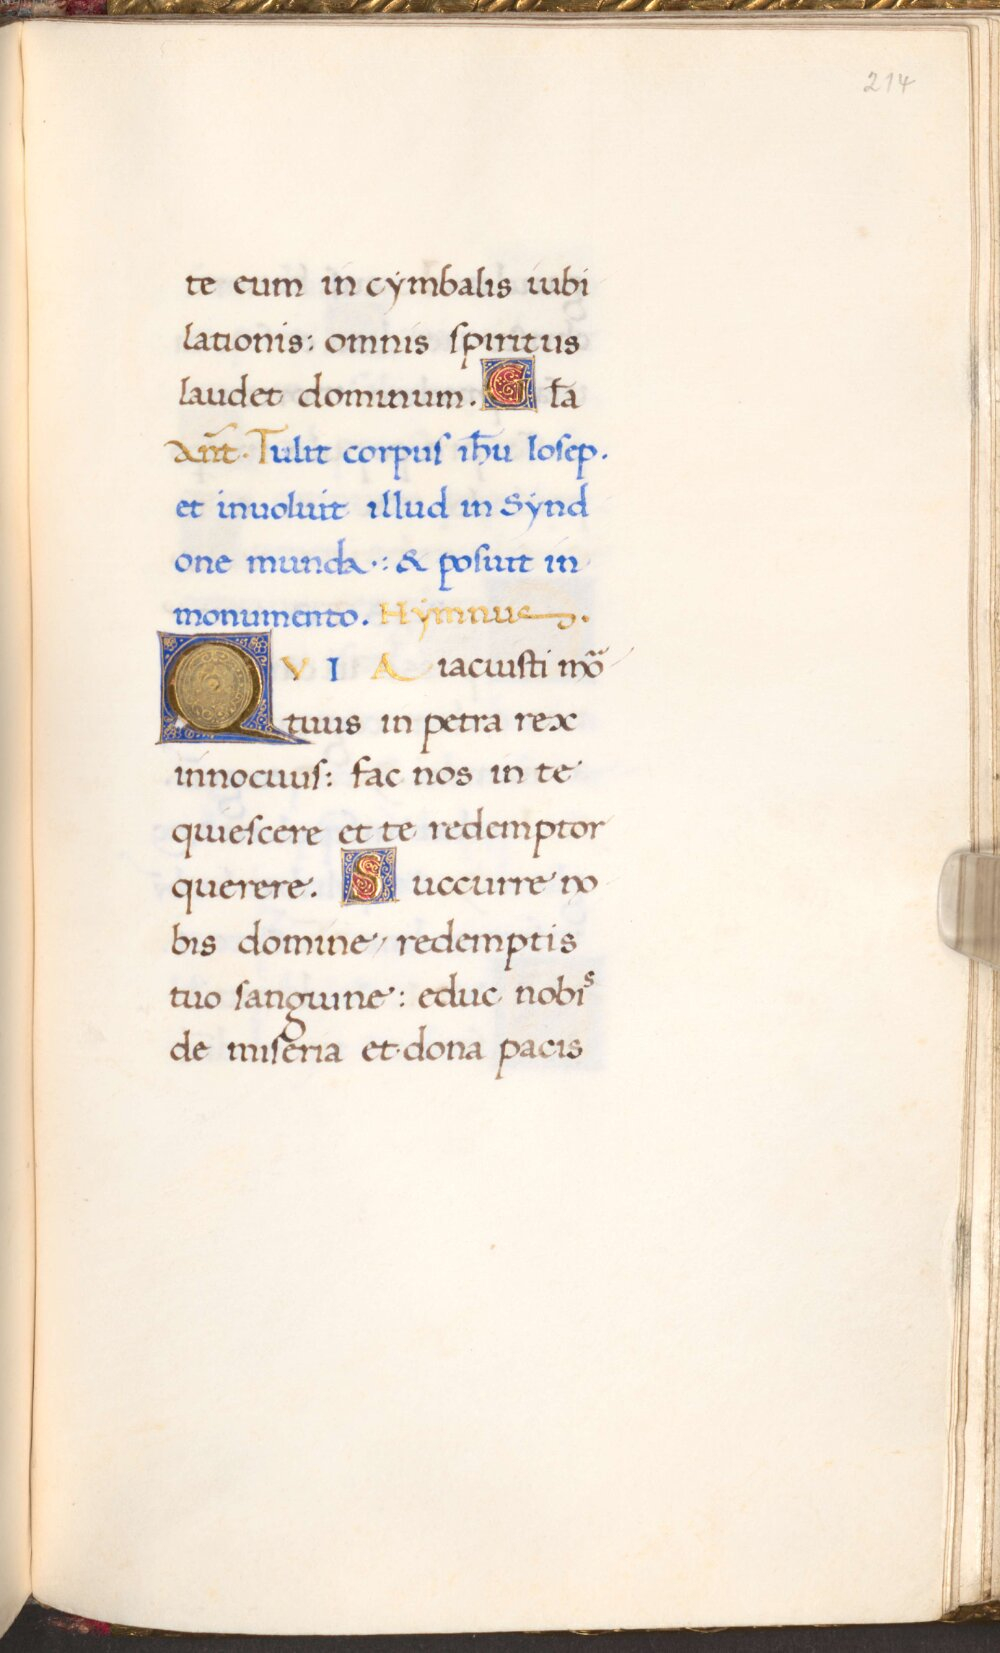 214
te eum in cymbalis iubi
lationis: omnis spiritus
laudet dominum. Gl̄a
An̄t. Tulit corpus ih̄u Iosep.
et inuoluit illud in Synd
one munda: & posuit in
monumento. Hymnus.
QVIA iacuisti mō
tuus in petra rex
innocuus: fac nos in te
quiescere et te redemptor
querere. Succurre no
bis domine, redemptis
tuo sanguine: educ nobis
de miseria et dona pacis